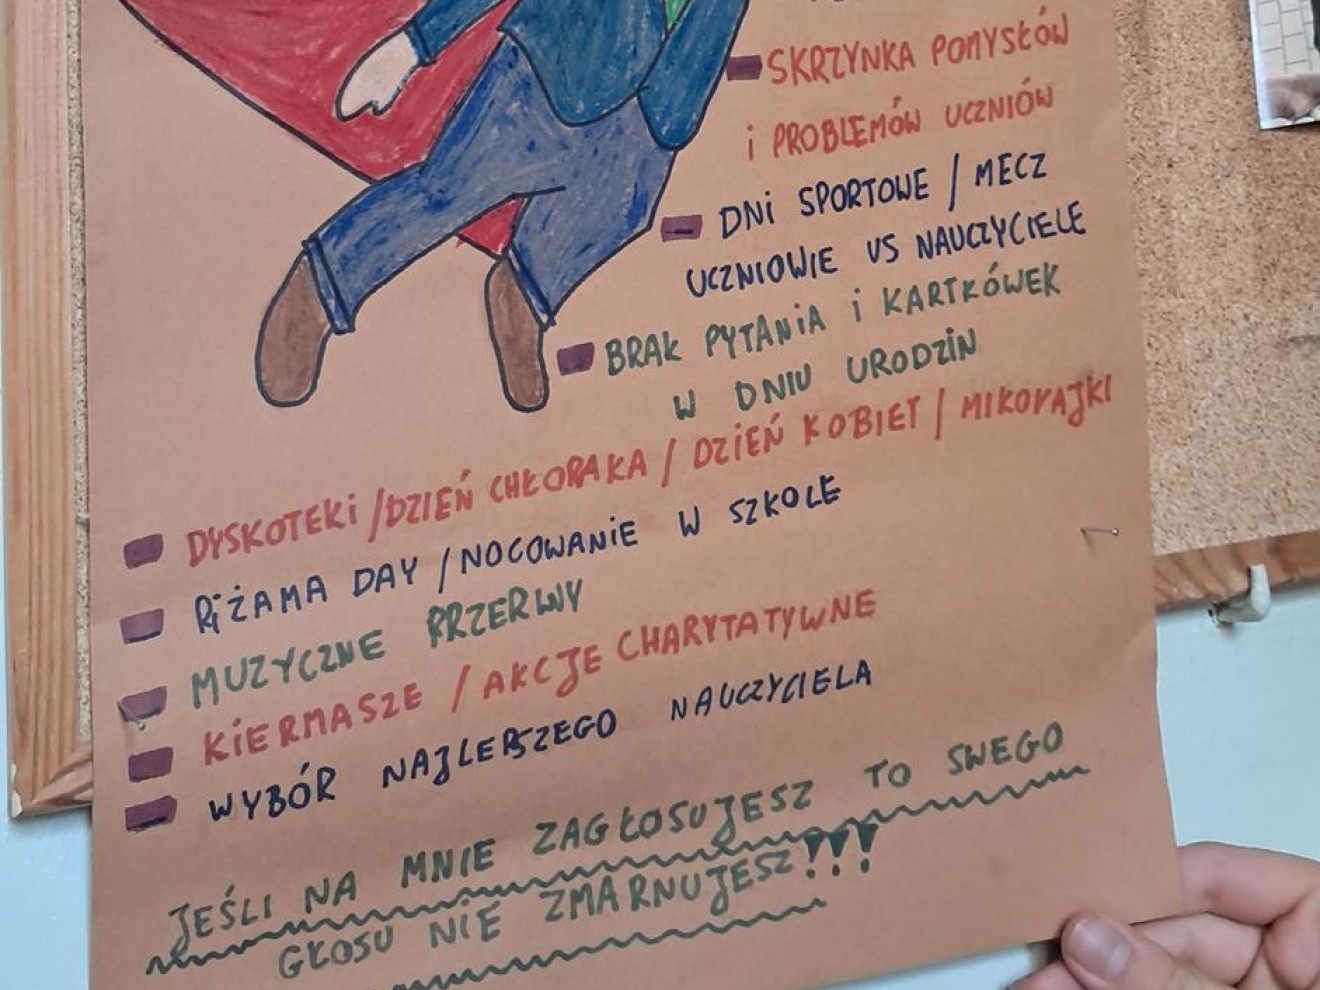 SKRZYNKA POMYSŁÓW
i PROBLEMÓW UCZNIÓW
DNi SPORTOWE / MECZ
UCZNIOWIE VS NAUCZYCIELE
BRAK PYTANiA i KARTKÓWEK
W DNIU URODZiN
DYSKOTEKi / DZIEŃ CHŁOPAKA / DZIEŃ KOBIET / MIKOŁAJKI
PiŻAMA DAY / NOCOWANiE W SZKOLE
MUZYCZNE PRZERWY
KiERMASZE / AKCJE CHARYTATYWNE
WYBÓR NAJLEPSZEGO NAUCZYCIELA
JEŚLI NA MNIE ZAGŁOSUJESZ TO SWEGO
GŁOSU NiE ZMARNUJESZ!!!